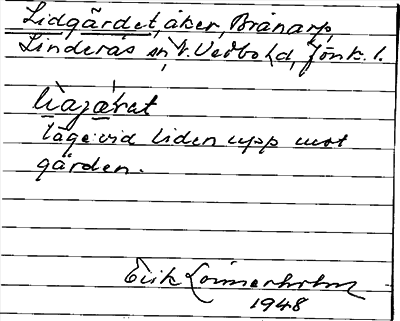 Lidgärdet, åker, Brånarp,
Linderås sn, N. Vedbo hd, Jönk. l.
liajæ̀rat
läge: vid liden upp mot
gården.
Erik Lönnerholm
1948